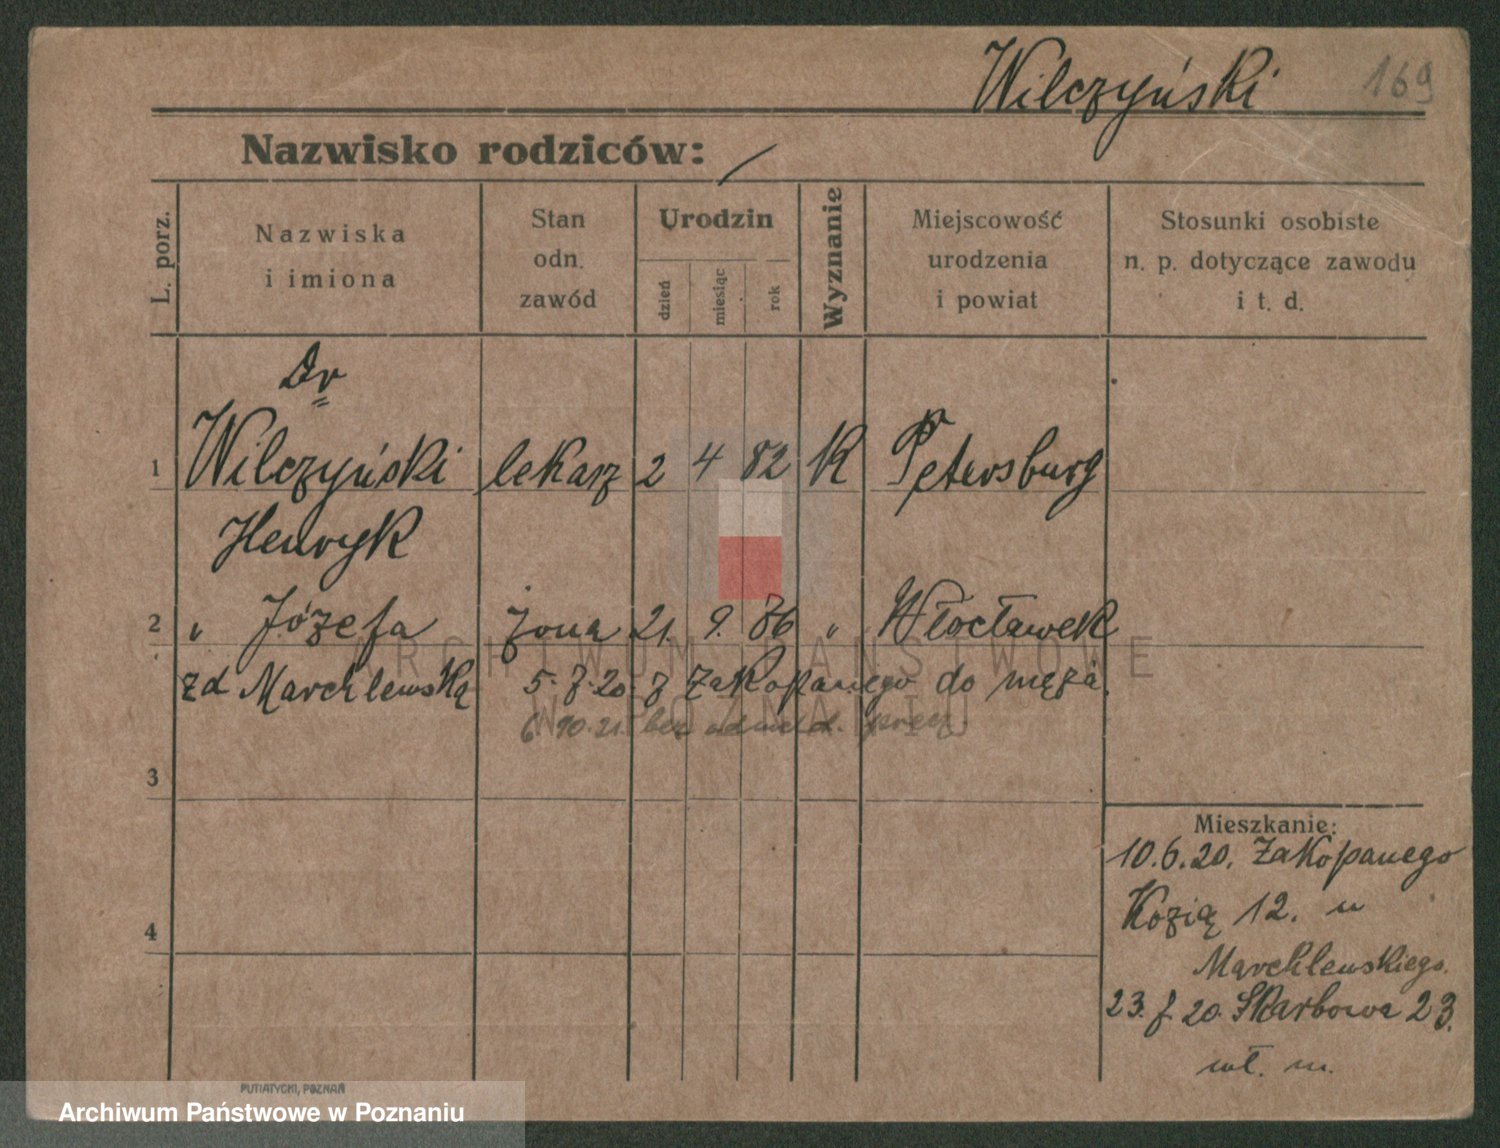 Wilczyński 169
Nazwisko rodziców: /
L. porz.
Nazwiska
i imiona
Stan
odn.
zawód
Urodzin
dzień
miesiąc
rok
Wyznanie
Miejscowość
urodzenia
i powiat
Stosunki osobiste
n. p. dotyczące zawodu
i t. d.
Dr
1 Wilczyński lekarz 2 4 82 K Petersburg
Henryk
2 " Józefa żona 21. 9. 86 " Włocławek
zd Marchlewską 5. 7. 20. z Zakopanego do męża.
6. 10. 21. bez odmeld. precz.
3
4
Mieszkanie:
10. 6. 20. Zakopanego
Kozią 12. u
Marchlewskiego.
23. 7. 20. Skarbowa 23.
wł. m.
PUTIATYCKI, POZNAŃ
ARCHIWUM PAŃSTWOWE
W POZNANIU
Archiwum Państwowe w Poznaniu